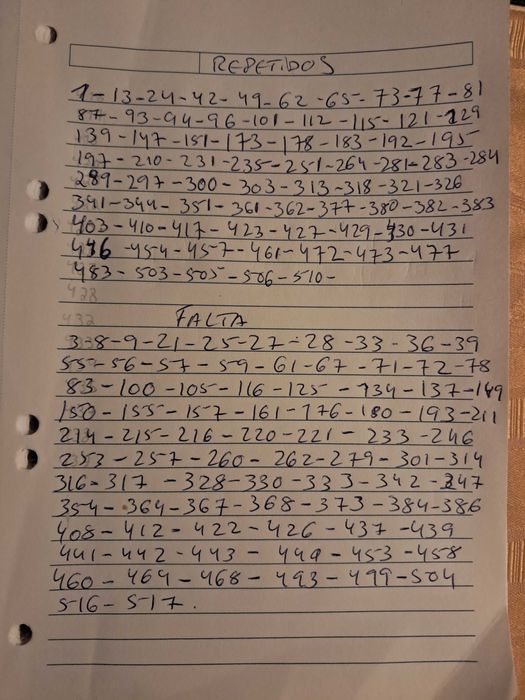 REPETIDOS
1-13-24-42-49-62-65-73-77-81
87-93-94-96-101-112-115-121-129
139-147-151-173-178-183-192-195
197-210-231-235-251-264-281-283-284
289-297-300-303-313-318-321-326
341-344-351-361-362-377-380-382-383
403-410-417-423-427-429-430-431
446-454-457-461-472-473-477
483-503-505-506-510-
FALTA
3-8-9-21-25-27-28-33-36-39
55-56-57-59-61-67-71-72-78
83-100-105-116-125-134-137-149
150-155-157-161-176-180-193-211
214-215-216-220-221-233-246
253-257-260-262-279-301-314
316-317-328-330-333-342-347
354-364-367-368-373-384-386
408-412-422-426-437-439
441-442-443-449-453-458
460-464-468-493-499-504
516-517.